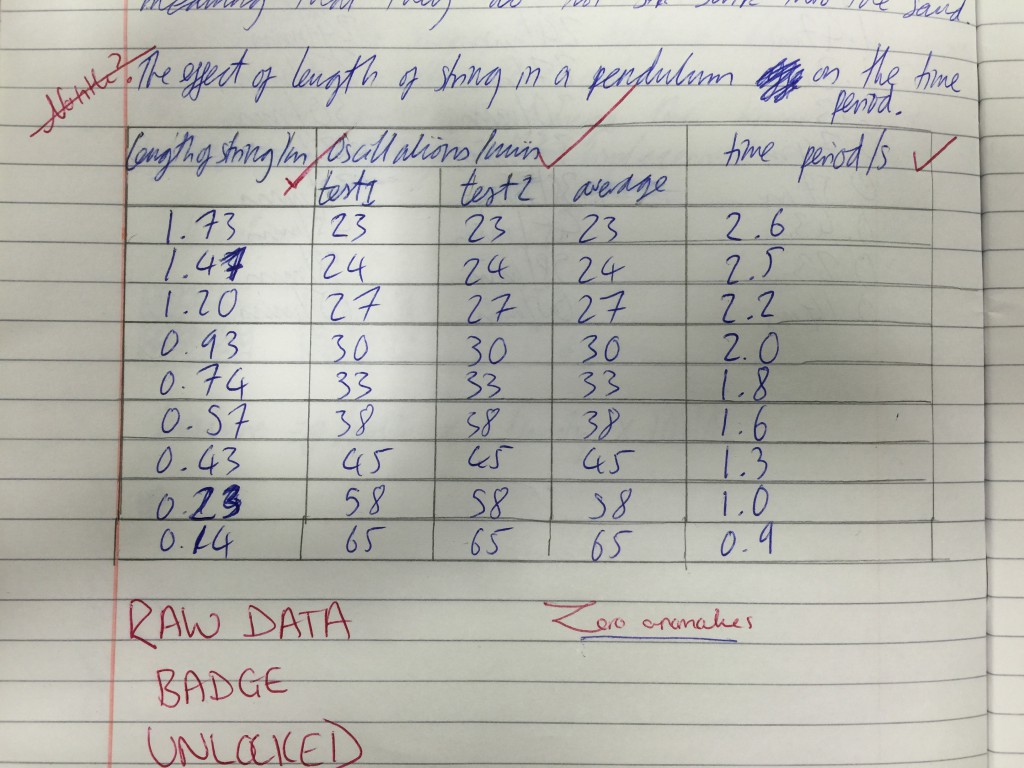 meaning that they do not sink into the sand.
The effect of length of string in a pendulum on the time
period.
length of string/m Oscillations/min time period/s
test1 test2 average
1.73 23 23 23 2.6
1.47 24 24 24 2.5
1.20 27 27 27 2.2
0.93 30 30 30 2.0
0.74 33 33 33 1.8
0.57 38 38 38 1.6
0.43 45 45 45 1.3
0.23 58 58 58 1.0
0.14 65 65 65 0.9
RAW DATA Zero anomalies
BADGE
UNLOCKED